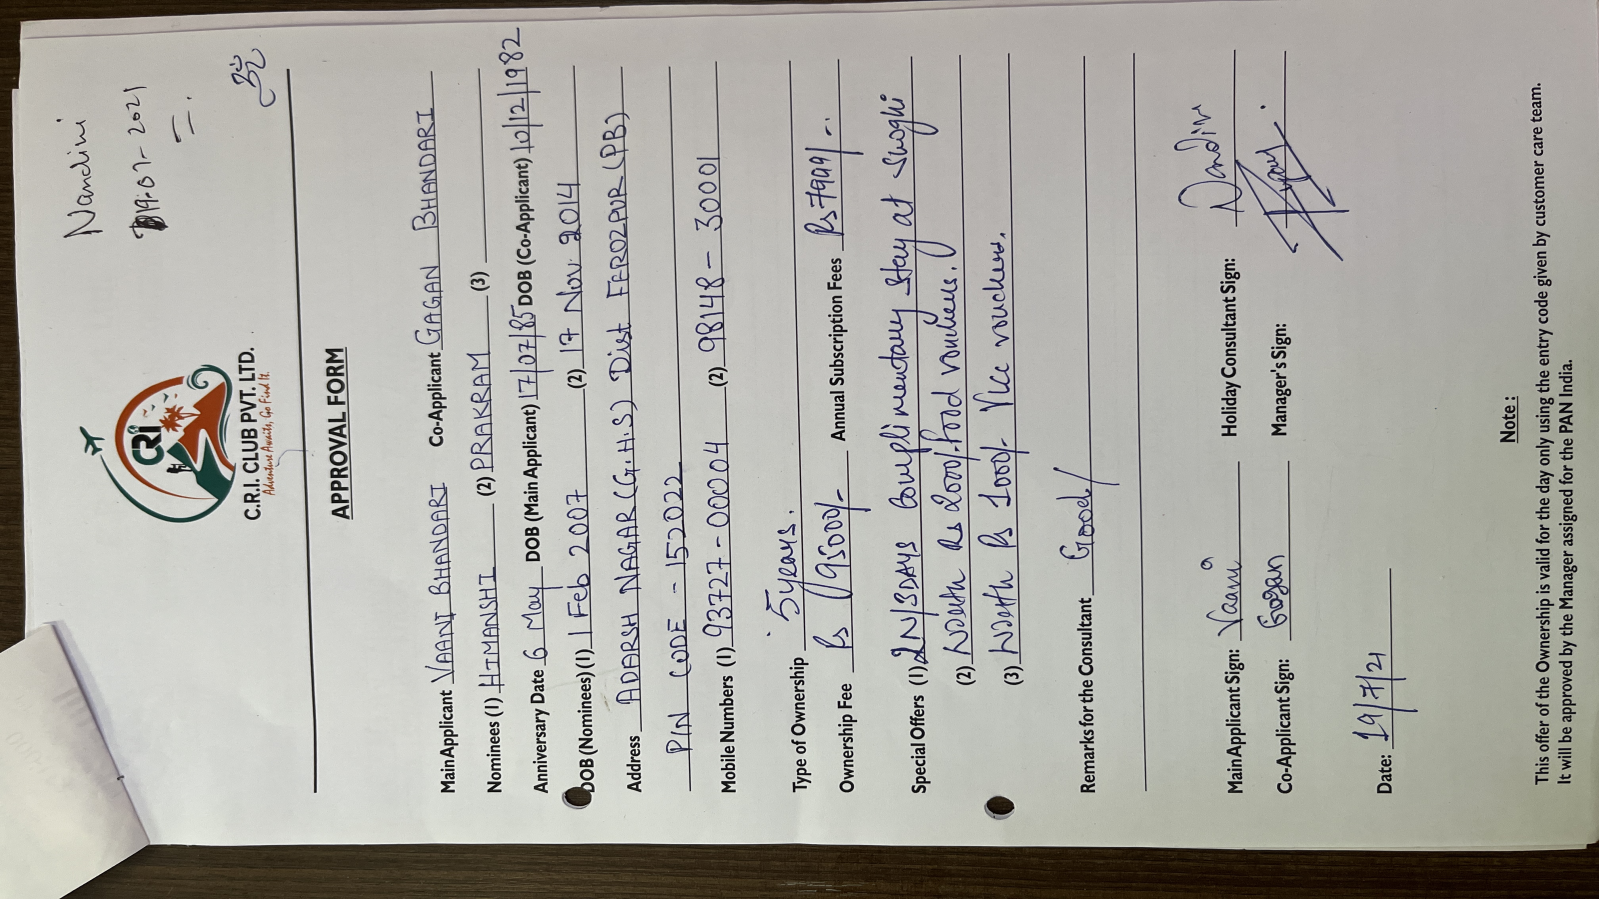 Nandini
19-07-2021
CRI
C.R.I. CLUB PVT. LTD.
Adventure Awaits, Go Find It.
APPROVAL FORM
Main Applicant VAANI BHANDARI Co-Applicant GAGAN BHANDARI
Nominees (1) HIMANSHI (2) PRAKRAM (3)
Anniversary Date 6 May DOB (Main Applicant) 17/07/85 DOB (Co-Applicant) 10/12/1982
DOB (Nominees) (1) 1 Feb 2007 (2) 17 Nov. 2014
Address ADARSH NAGAR (G.H.S) Dist FEROZPUR (PB)
PIN CODE - 152022
Mobile Numbers (1) 93727-00004 (2) 98148-30001
Type of Ownership 5 years.
Ownership Fee Rs 95000/- Annual Subscription Fees Rs 7999/-
Special Offers (1) 2N/3DAYS Complimentary Stay at Shoghi
(2) Worth Rs 2000/- Food vouchers.
(3) Worth Rs 1000/- Vcc vouchers.
Remarks for the Consultant Good/
Main Applicant Sign: Vaani Holiday Consultant Sign: Nandini
Co-Applicant Sign: Gagan Manager's Sign:
Date: 19/7/21
Note :
This offer of the Ownership is valid for the day only using the entry code given by customer care team.
It will be approved by the Manager assigned for the PAN India.